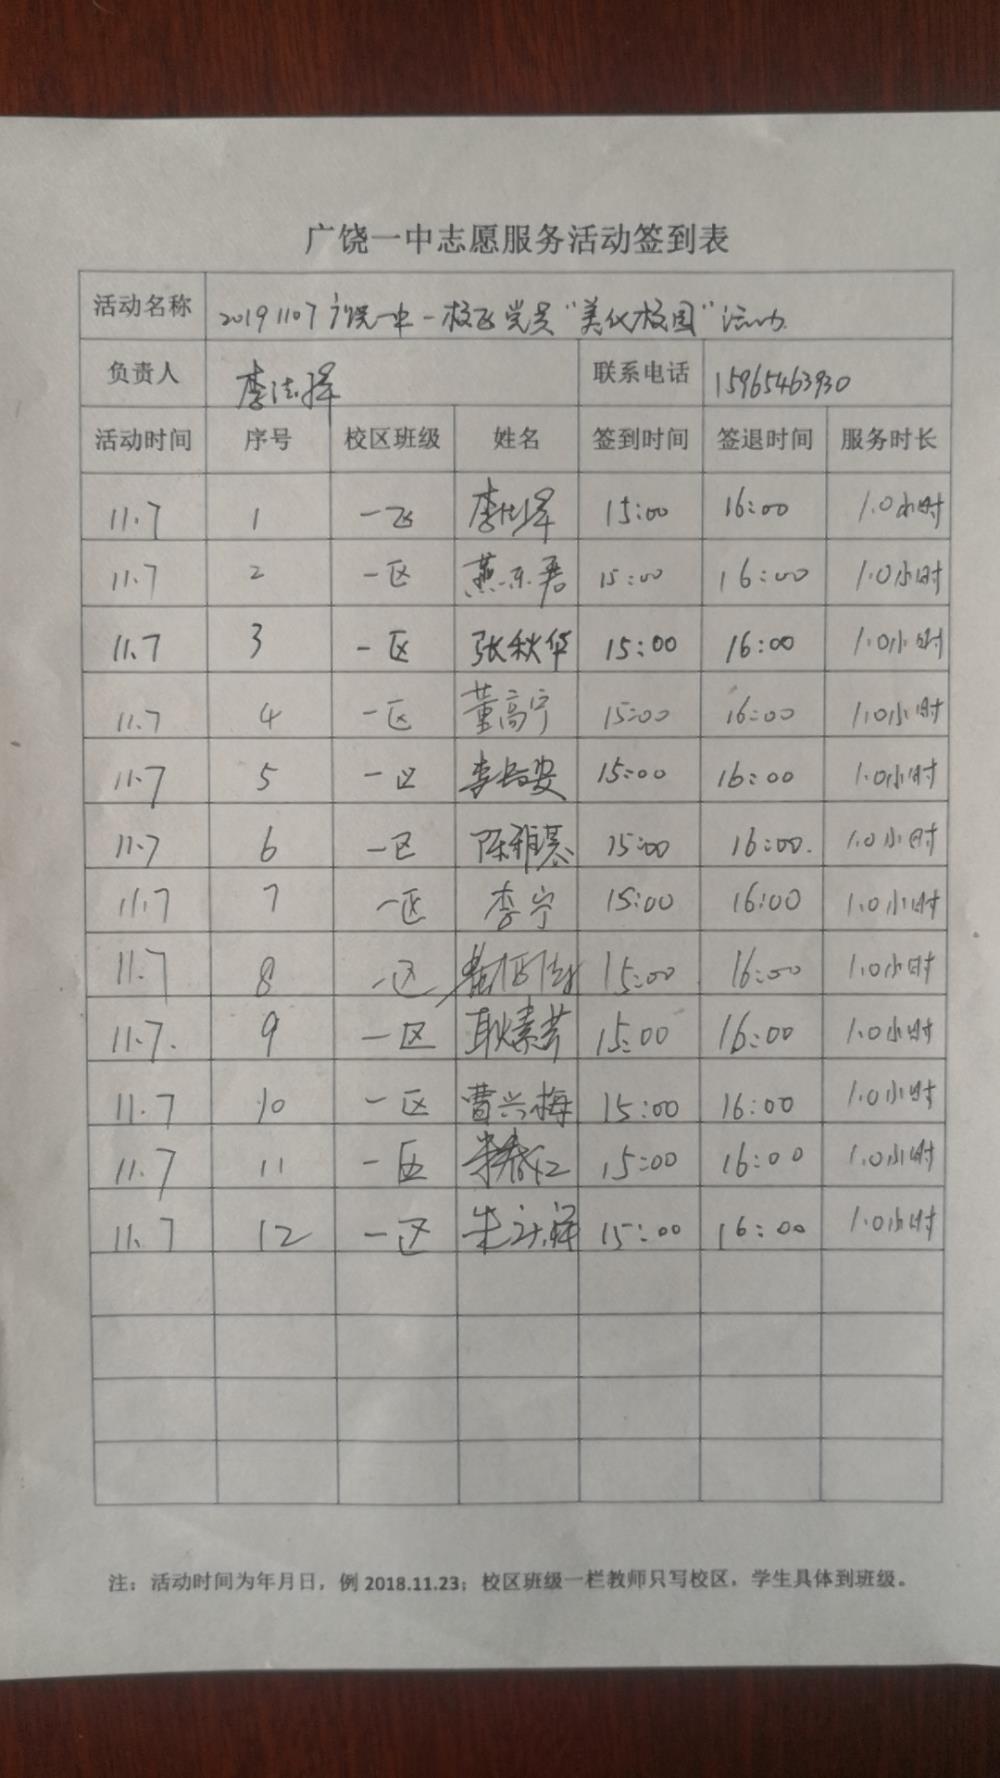 广饶一中志愿服务活动签到表
活动名称 20191107广饶一中一校区党员“美化校园”活动
负责人 李法泽 联系电话 15965463930
活动时间 序号 校区班级 姓名 签到时间 签退时间 服务时长
11.7 1 一区 李法泽 15:00 16:00 1.0小时
11.7 2 一区 燕东君 15:00 16:00 1.0小时
11.7 3 一区 张秋华 15:00 16:00 1.0小时
11.7 4 一区 董高宁 15:00 16:00 1.0小时
11.7 5 一区 李长安 15:00 16:00 1.0小时
11.7 6 一区 陈雅慕 15:00 16:00. 1.0小时
11.7 7 一区 李宁 15:00 16:00 1.0小时
11.7 8 一区 15:00 16:00 1.0小时
11.7. 9 一区 耿素芹 15:00 16:00 1.0小时
11.7 10 一区 曹兴梅 15:00 16:00 1.0小时
11.7 11 一区 15:00 16:00 1.0小时
11.7 12 一区 15:00 16:00 1.0小时
注：活动时间为年月日，例 2018.11.23；校区班级一栏教师只写校区，学生具体到班级。